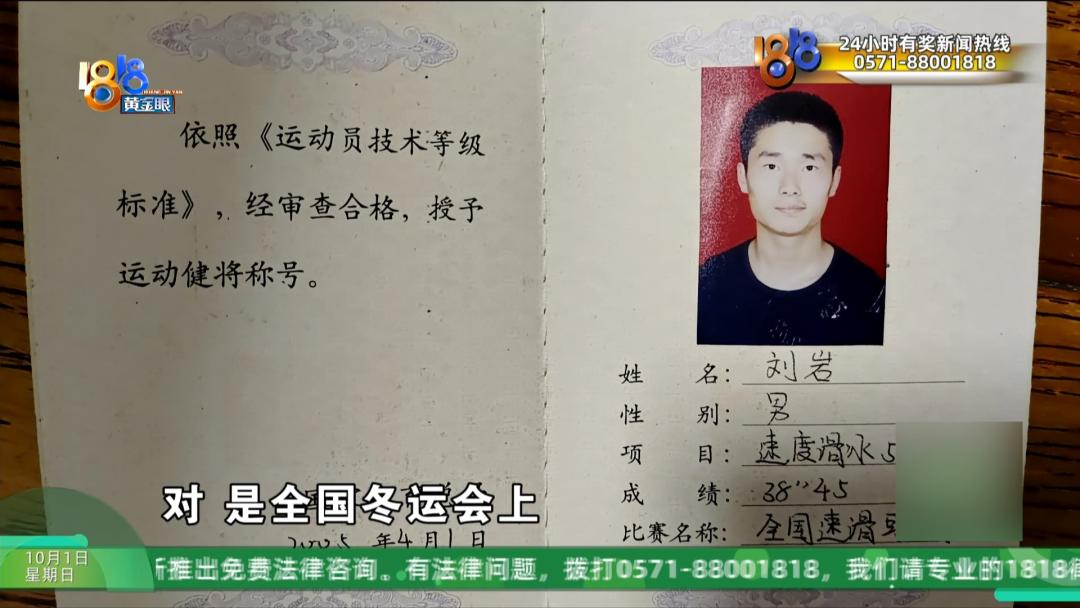 1818
黄金眼
24小时有奖新闻热线
0571-88001818
依照《运动员技术等级
标准》，经审查合格，授予
运动健将称号。
姓 名：刘岩
性 别：男
项 目：速度滑冰5
成 绩：38"45
比赛名称：全国速滑
对 是全国冬运会上
年4月1日
10月1日
星期日
推出免费法律咨询。有法律问题，拨打0571-88001818，我们请专业的1818